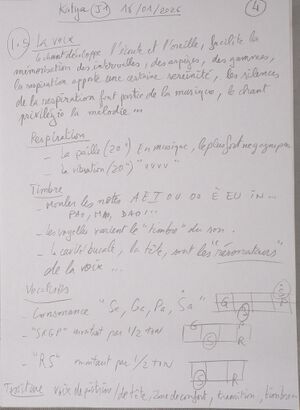 Katya (J1) 16/01/2026 (4)
1.5) La voix
le chant développe l'écoute et l'oreille, facilite la
mémorisation des intervalles, des arpèges, des gammes,
la respiration apporte une certaine sérénité, les silences
de la respiration font partie de la musique, le chant
privilégie la mélodie ...
Respiration
- La paille (20") En musique, le plus fort ne gagne pas
- La vibration (20") "vvvv"
Timbre
- Mouler les notes A É I O U OU È EU IN ...
PAO, MAO, DAO! ...
- Les voyelles varient le "timbre" du son.
- La cavité bucale, la tête, sont les "résonateurs"
de la voix ...
Vocalises
- Consonance "Sa, Ga, Pa, Sa" G P S
- "SRGP" montant par 1/2 ton G P S R
- "RS" montant par 1/2 ton S R
voix de poitrine / de tête, zone de confort, transition, timbre